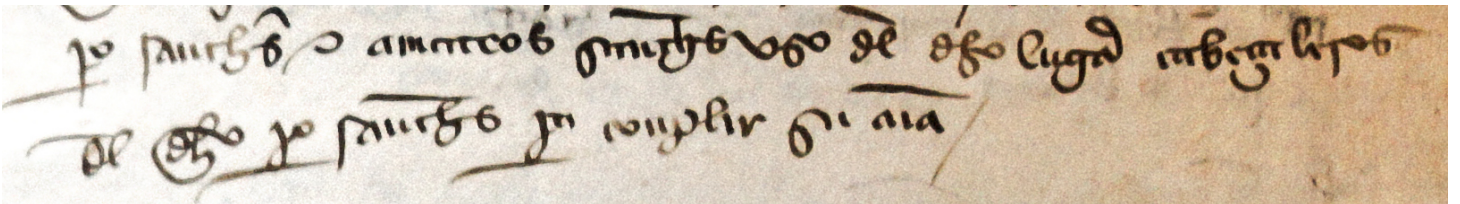 po sanchs e a mateos sanchs vso dl dho lugar cabeçaleros
dl dho po sanchs pa conplir su aia